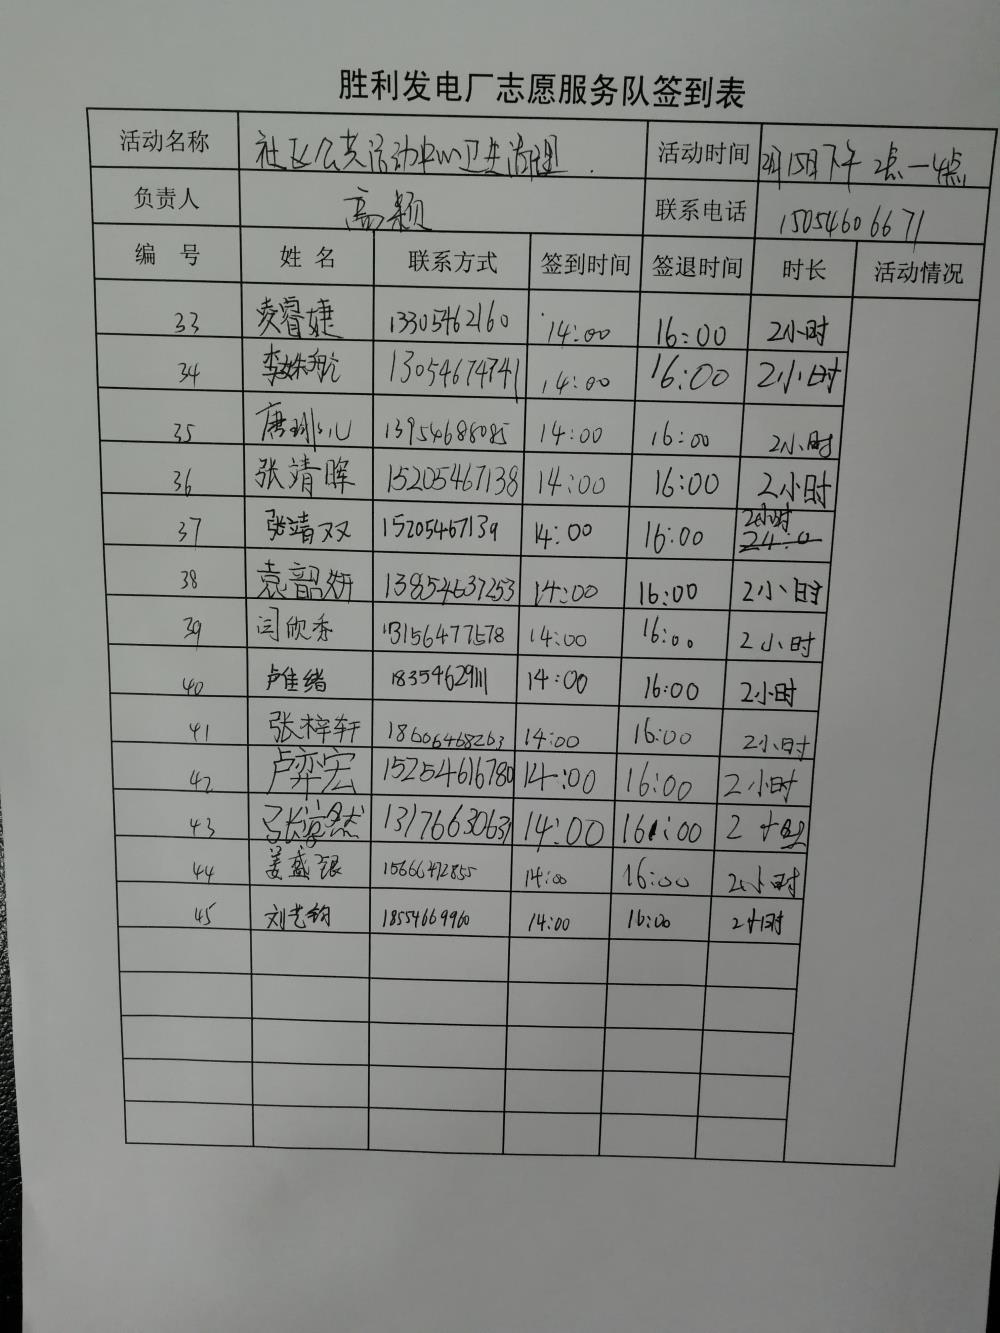 胜利发电厂志愿服务队签到表
活动名称 社区公共活动中心卫生清理 活动时间 2月15日下午 2点—4点
负责人 高颖 联系电话 15054606671
编 号 姓 名 联系方式 签到时间 签退时间 时长 活动情况
33 凌睿婕 13305462160 14:00 16:00 2小时
34 李姝航 13054674741 14:00 16:00 2小时
35 唐 13954688085 14:00 16:00 2小时
36 张靖晖 15205467138 14:00 16:00 2小时
37 张靖双 15205467139 14:00 16:00 2小时
38 袁韶妍 13854637253 14:00 16:00 2小时
39 闫欣秀 13156477578 14:00 16:00 2小时
40 卢佳绪 18354629111 14:00 16:00 2小时
41 张梓轩 18606468263 14:00 16:00 2小时
42 卢弈宏 15254616780 14:00 16:00 2小时
43 张 然 13176630631 14:00 16:00 2小时
44 姜盛银 15666472855 14:00 16:00 2小时
45 刘艺钧 18554669960 14:00 16:00 2小时